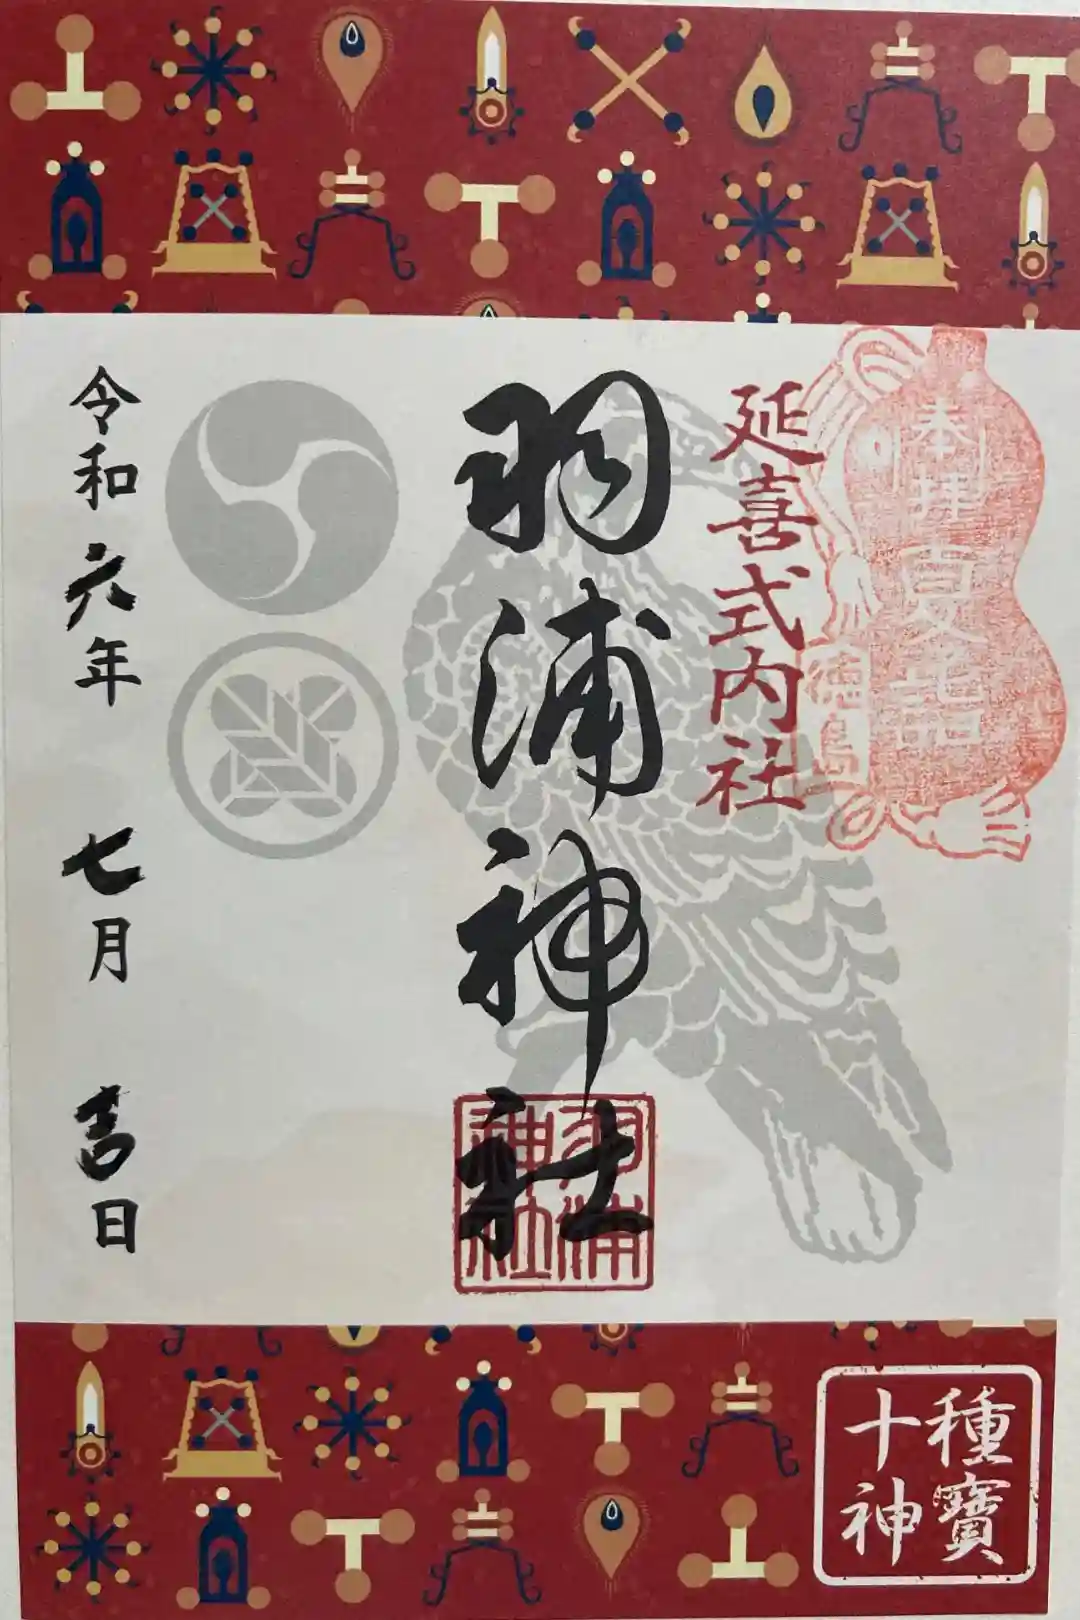 奉拝
夏詣
徳島
延喜式内社
羽浦神社
羽浦
神社
令和六年 七月 吉日
十種
神寶